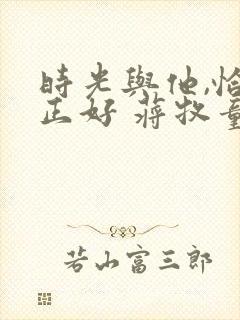 時光與他,恰
正好 蔣牧童
若山富三郎